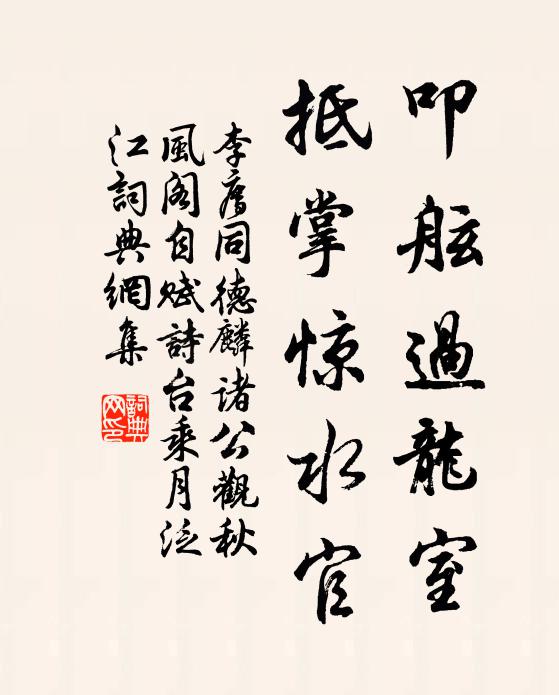 叩舷過龍室
抵掌惊水官
李廌同德麟諸公觀秋
風阁自赋詩台乘月泛
江詞典網集
詞典
网印